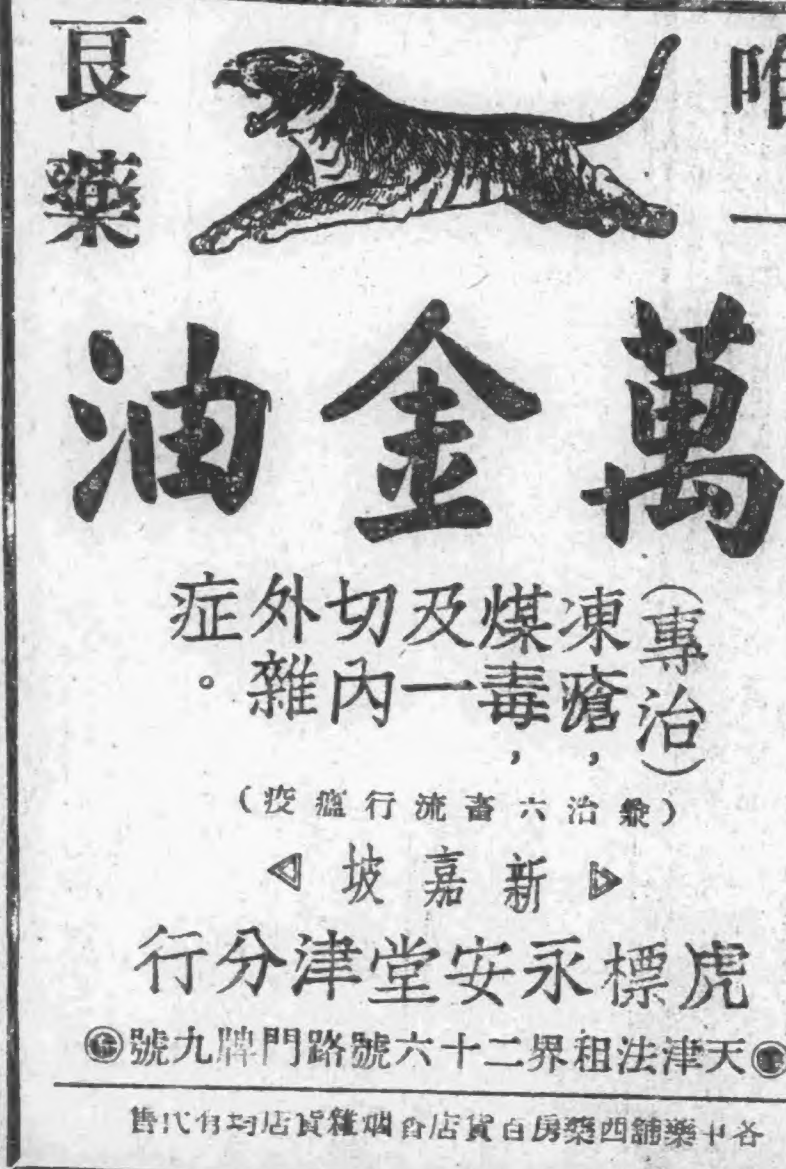 唯一
良藥
萬金油
（專治）
凍瘡，
煤毒，
及一
切內
外雜
症。
（兼治六畜流行瘟疫）
新嘉坡
虎標永安堂津分行
天津法租界二十六號路門牌九號
各中藥舖西藥房百貨店香烟雜貨店均有代售